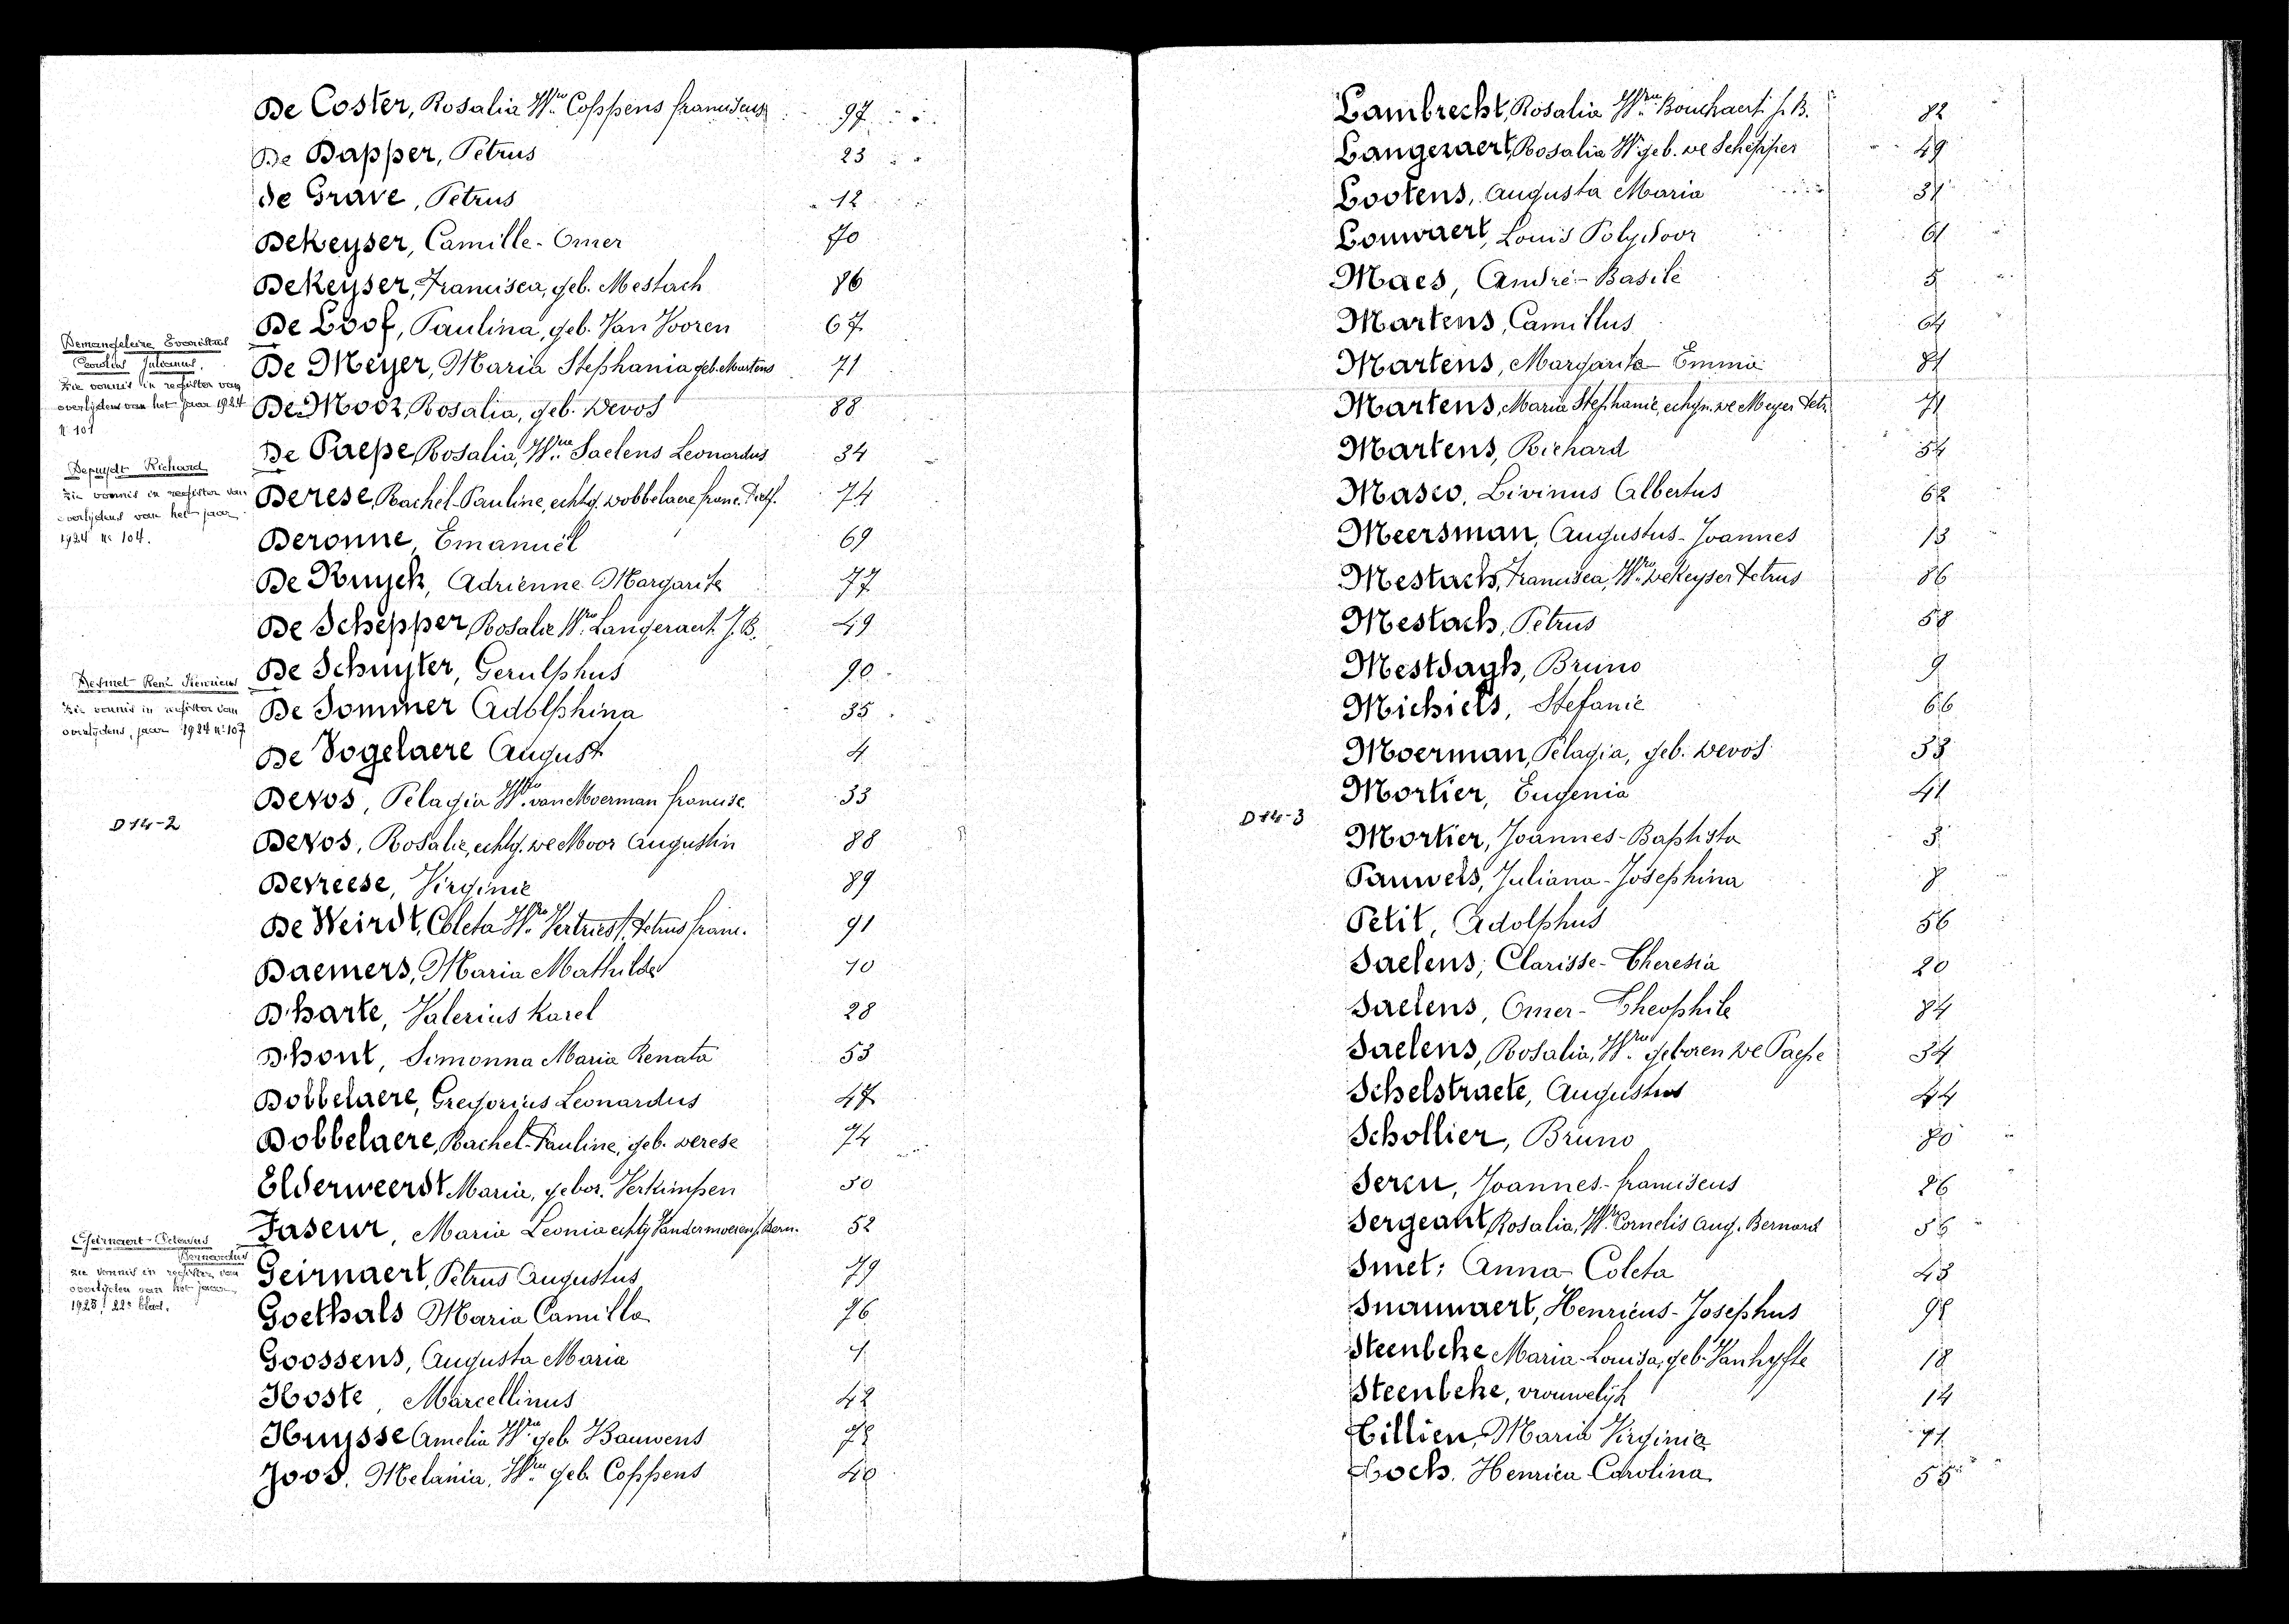 De Coster, Rosalia Wwe Coppens franciscus 97
De Dapper, Petrus 23
de Grave, Petrus 12
DeKeyser, Camille-Omer 70
DeKeyser, Francisca, geb. Mestach 86
De Loof, Paulina, geb. Van Vooren 67
Demangeleire Evaristus
Carolus Julianus.
Zie vonnis in register van
overlijdens van het jaar 1924
N 101
De Meyer, Maria Stephania geb. Martens 71
De Moor, Rosalia, geb. Devos 88
De Paepe, Rosalia, Wwe Saelens Leonardus 34
Depuydt Richard
zie vonnis in register van
overlijdens van het jaar
1924 N: 104.
Derese, Rachel-Pauline, echtg. Dobbelaere franc. 74
Deronne, Emanuël 69
De Ruyck, Adrienne Margarita 77
De Schepper, Rosalie Wwe Langeraert J. B. 49
De Schuyter, Gerulphus 90
Desmet René Henricus
zie vonnis in register van
overlijdens, jaar 1924 n: 107
De Sommer Adolphina 35
De Vogelaere August 4
Devos, Pelagia Wwe van Moerman francisc. 33
D14-2
Devos, Rosalie, echtg. De Moor Augustin 88
Devreese, Virginie 89
De Weirdt, Coleta Wwe Vertriest, Petrus franc. 91
Daemers, Maria Mathilde 10
D'harte, Valerius Karel 28
Dhont, Simonna Maria Renata 53
Dobbelaere, Gregorius Leonardus 47
Dobbelaere, Rachel-Pauline, geb. Derese 74
Elderweerdt Maria, gebor. Verkimpen 50
Faseur, Maria Leonia echtg Vandermoeren, Bern. 52
Geirnaert
Bernardus
zie vonnis in register van
overlijden van het jaar
1925! 22e blad.
Geirnaert, Petrus Augustus 79
Goethals Maria Camilla 76
Goossens, Augusta Maria 1
Hoste, Marcellinus 42
Huysse Amelia Wwe geb. Bauwens 78
Joos, Melania, Wwe geb. Coppens 40
Lambrecht, Rosalia Wwe Bouchaert J. B. 82
Langeraert, Rosalia W geb. De Schepper 49
Lootens, Augusta Maria 31
Louwaert, Louis Polydoor 61
Maes, André-Basile 5
Martens, Camillus 64
Martens, Margarita-Emma 81
Martens, Maria Stephanie, echgn. De Meyer Petr. 71
Martens, Richard 54
Masco, Livinus Albertus 62
Meersman, Augustus-Joannes 13
Mestach, Francisca, Wwe DeKeyser Petrus 86
Mestach, Petrus 58
Mestdagh, Bruno 9
Michiels, Stefanie 66
Moerman, Pelagia, geb. Devos 33
Mortier, Eugenia 41
D14-3
Mortier, Joannes-Baptista 3
Pauwels, Juliana-Josephina 8
Petit, Adolphus 56
Saelens, Clarisse-Theresia 20
Saelens, Omer-Theophile 84
Saelens, Rosalia, Wwe geboren De Paepe 34
Schelstraete, Augustus 44
Schollier, Bruno 80
Seren, Joannes-franciscus 26
Sergeant, Rosalia, Wwe Cornelis Aug. Bernard
Smet, Anna-Coleta 43
Snauwaert, Henricus-Josephus 98
Steenbeke Maria-Louisa, geb. Vanhyfte 18
Steenbeke, vrouwelijk 14
Tillien, Maria Virginia
Toch, Henrica Carolina